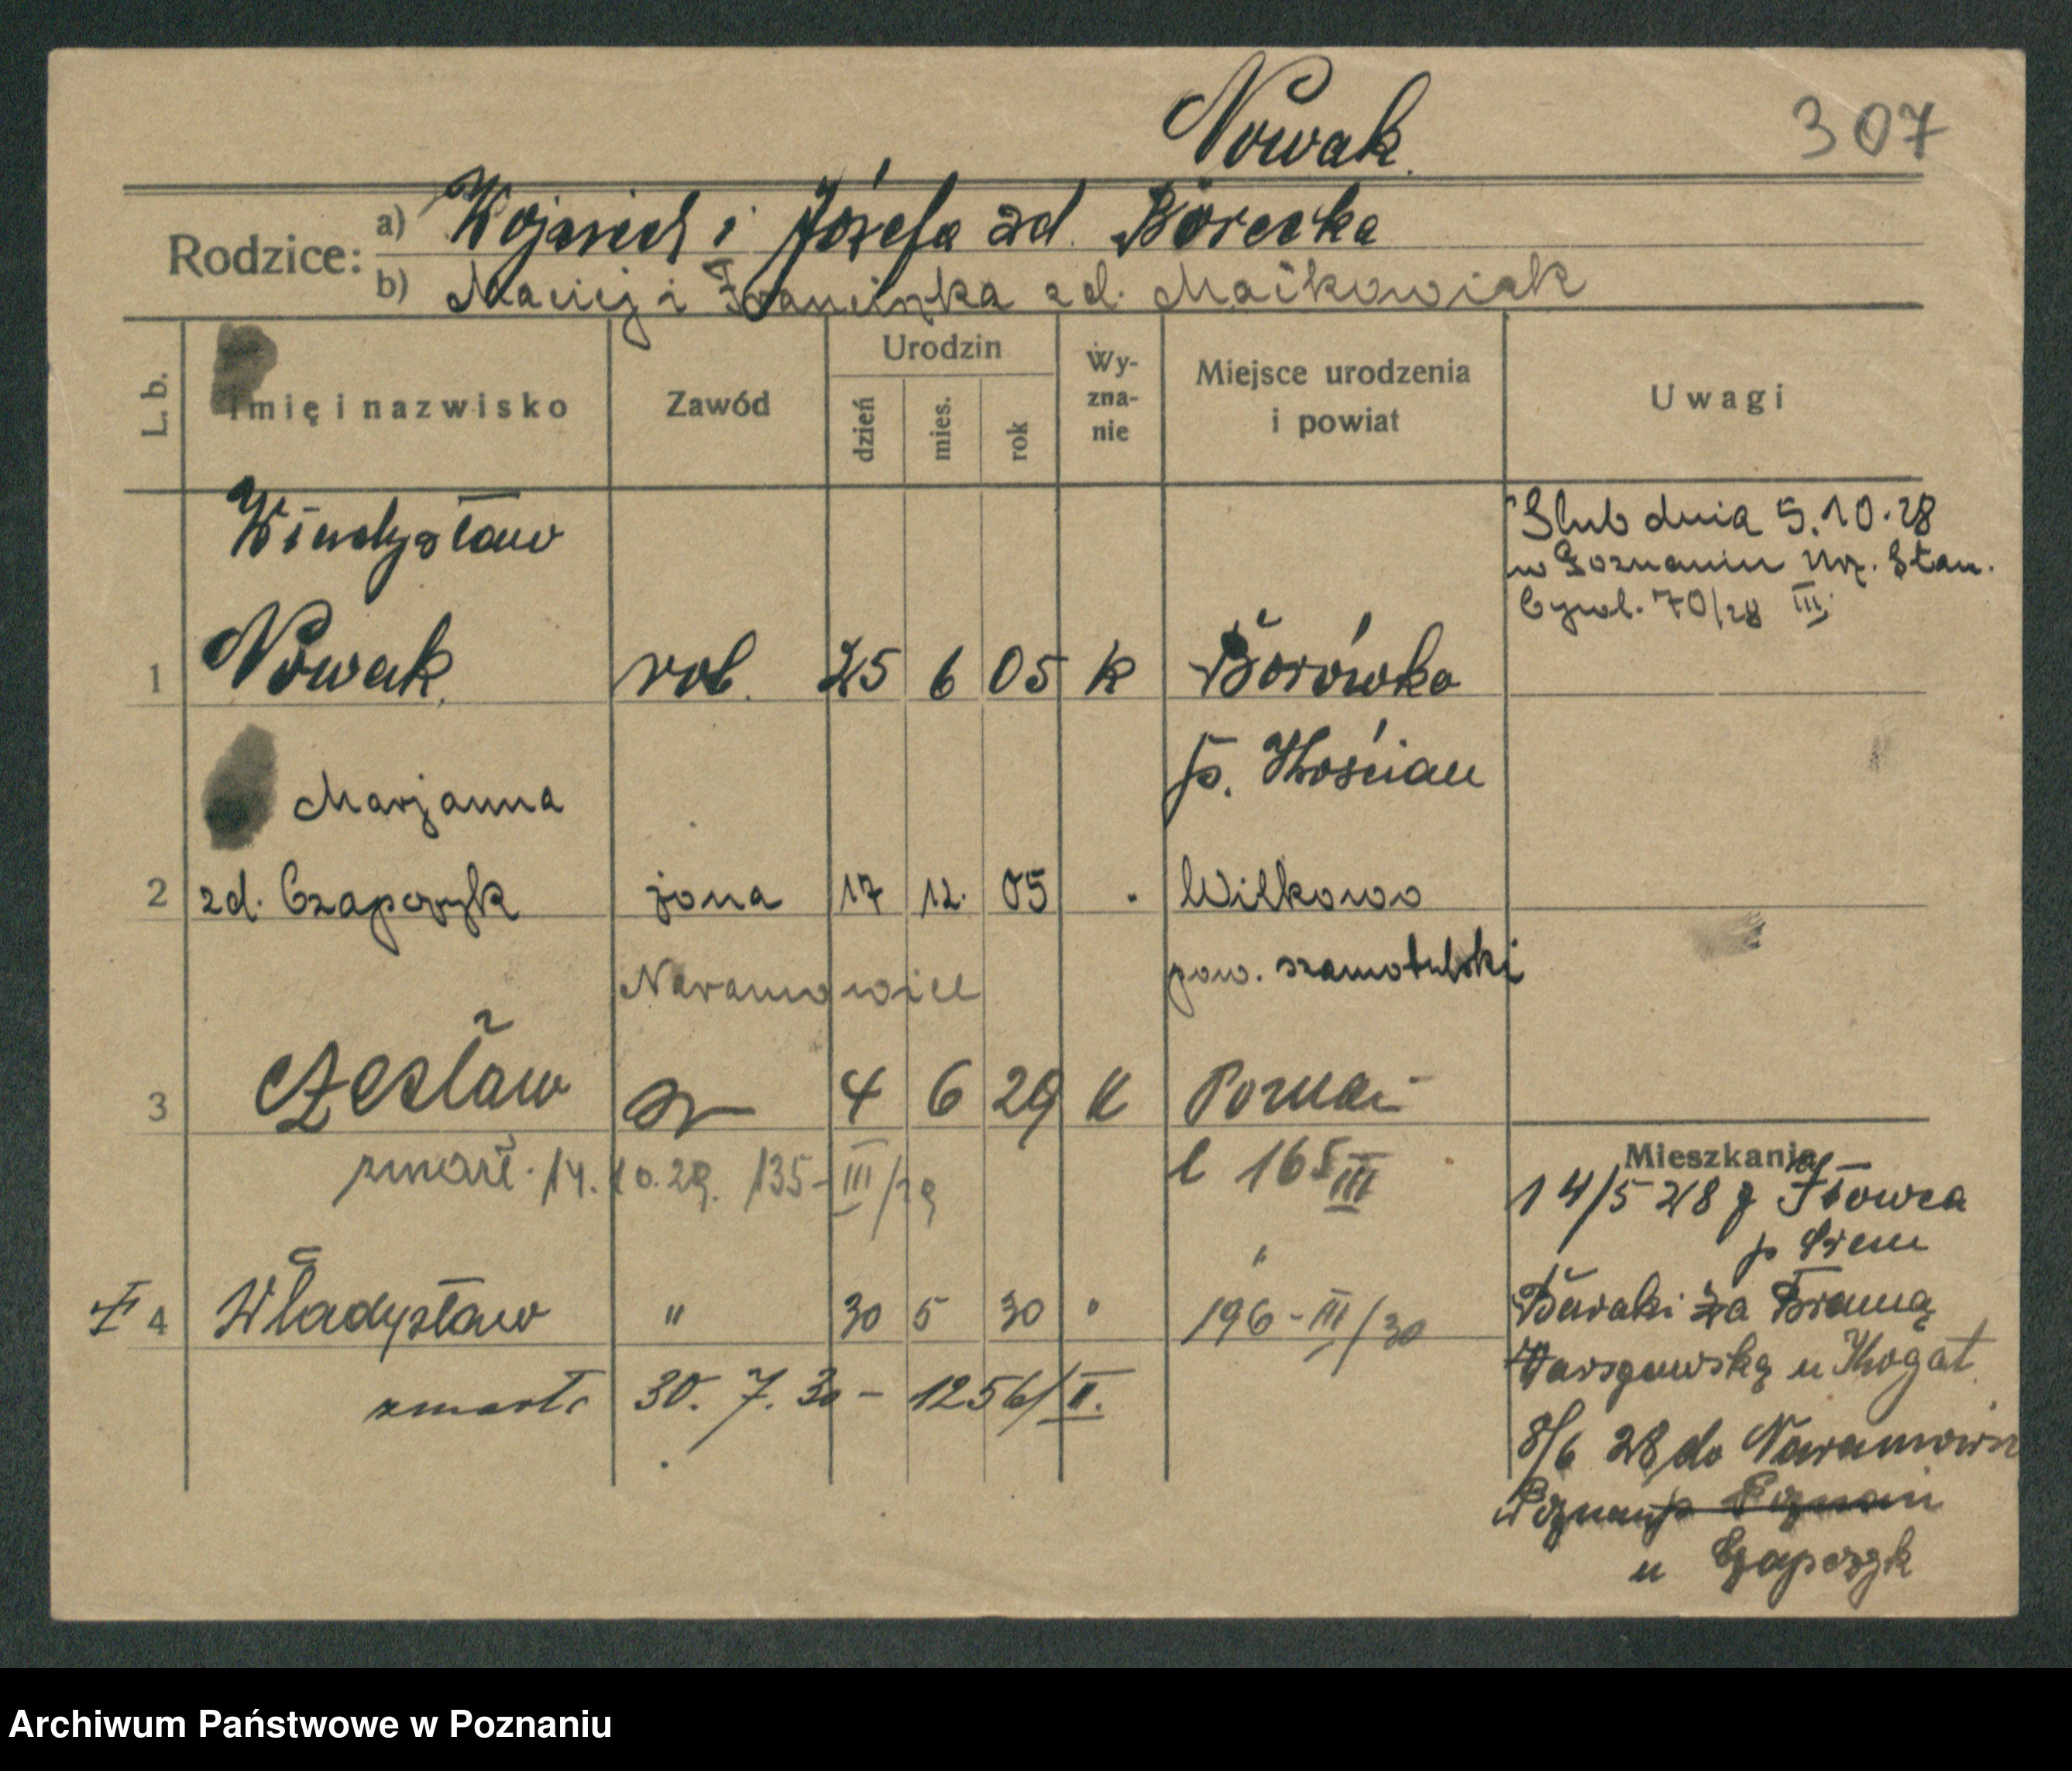 Nowak.
307
Rodzice:
a) Wojciech i Józefa zd. Borecka
b) Maciej i Franciszka zd. Maćkowiak
L. b.
Imię i nazwisko
Zawód
Urodzin
dzień
mies.
rok
Wy-
zna-
nie
Miejsce urodzenia
i powiat
Uwagi
Władysław
Slub dnia 5.10.28
w Poznaniu Urz. Stan.
Cywil. 70/28 III
1 Nowak. rob. 25 6 05 k Borówko
p. Kościan
Marjanna
2 zd. Czapczyk żona 17 12. 05 " Wilkowo
Naramowice pow. szamotulski
3 Czesław 4 6 29 k Poznań
zmarł. 14.10.29. 135-III/29
l 165 III
"
4 Władysław " 30 5 30 " 196-III/30
zmarł 30. 7. 30 - 1256/II.
Mieszkania
14/5 28 z Iłowca
p Srem
Baraki za Bramą
Warszawską u Kogat
8/6 28 do Naramowic
p Poznań
u Czapczyk
Archiwum Państwowe w Poznaniu